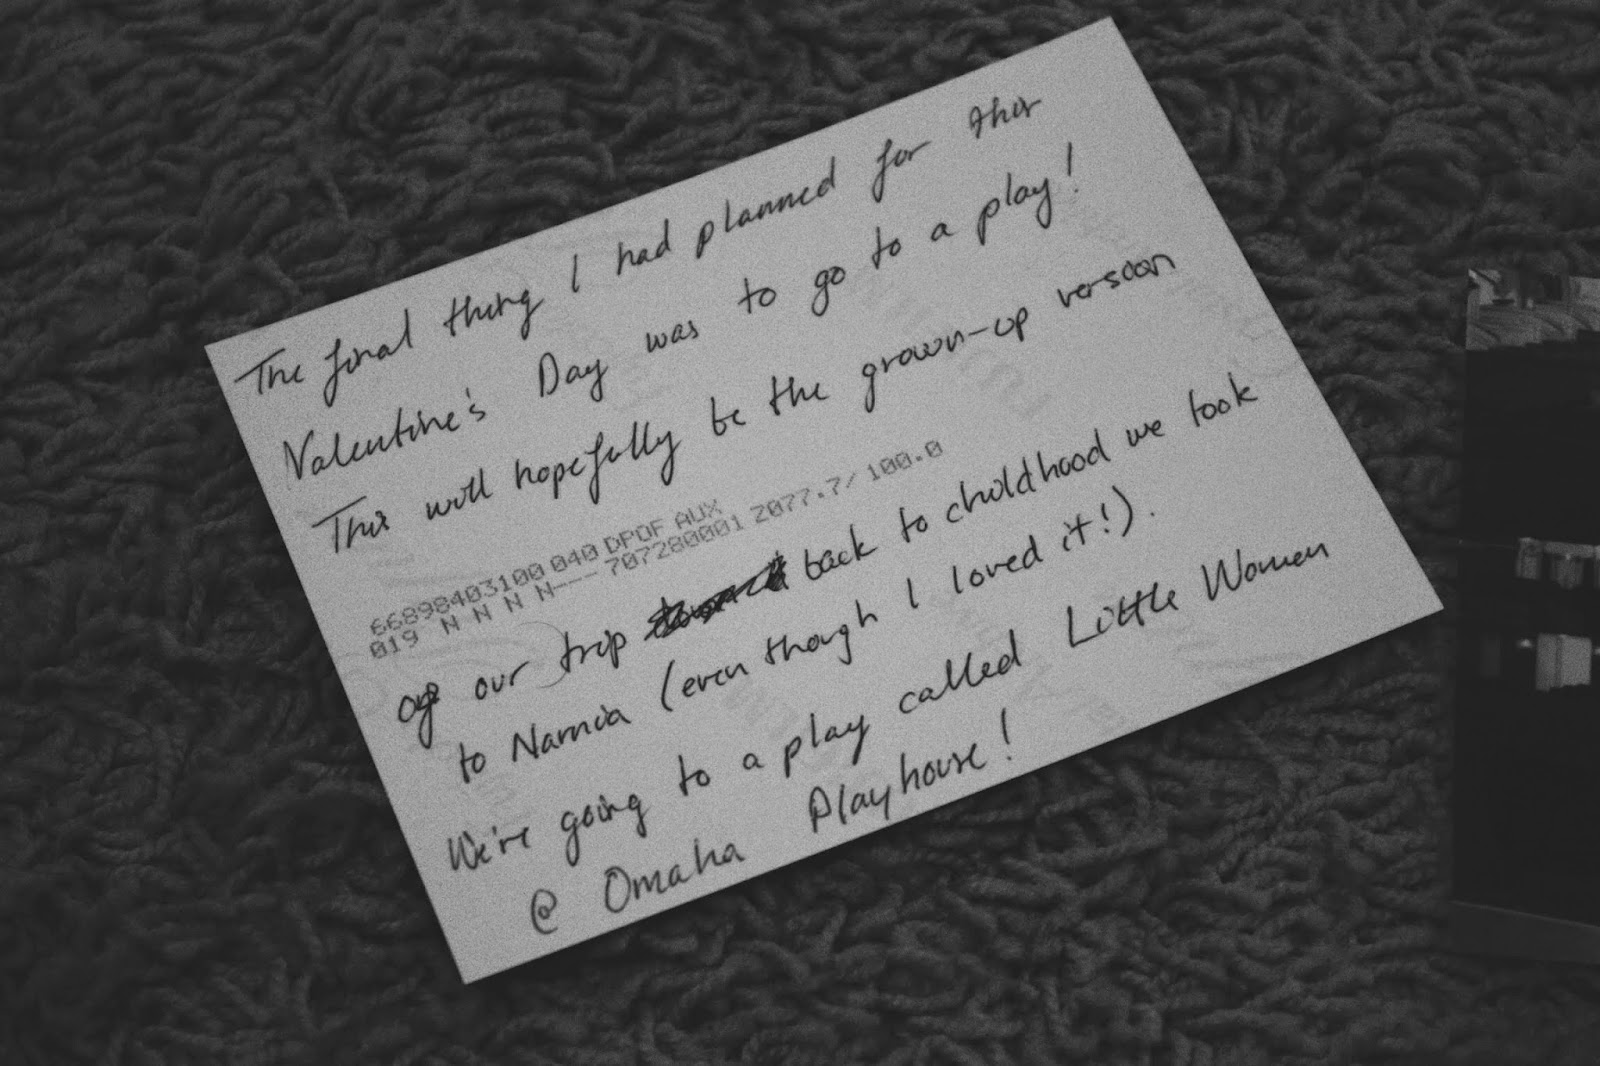 The final thing I had planned for this
Valentine's Day was to go to a play!
This will hopefully be the grown-up version
66898403100 040 DPOF AUX
019 N N N N--- 707280001 2077.7/ 100.0
of our trip back to childhood we took
to Narnia (even though I loved it!).
We're going to a play called Little Women
@ Omaha Playhouse!